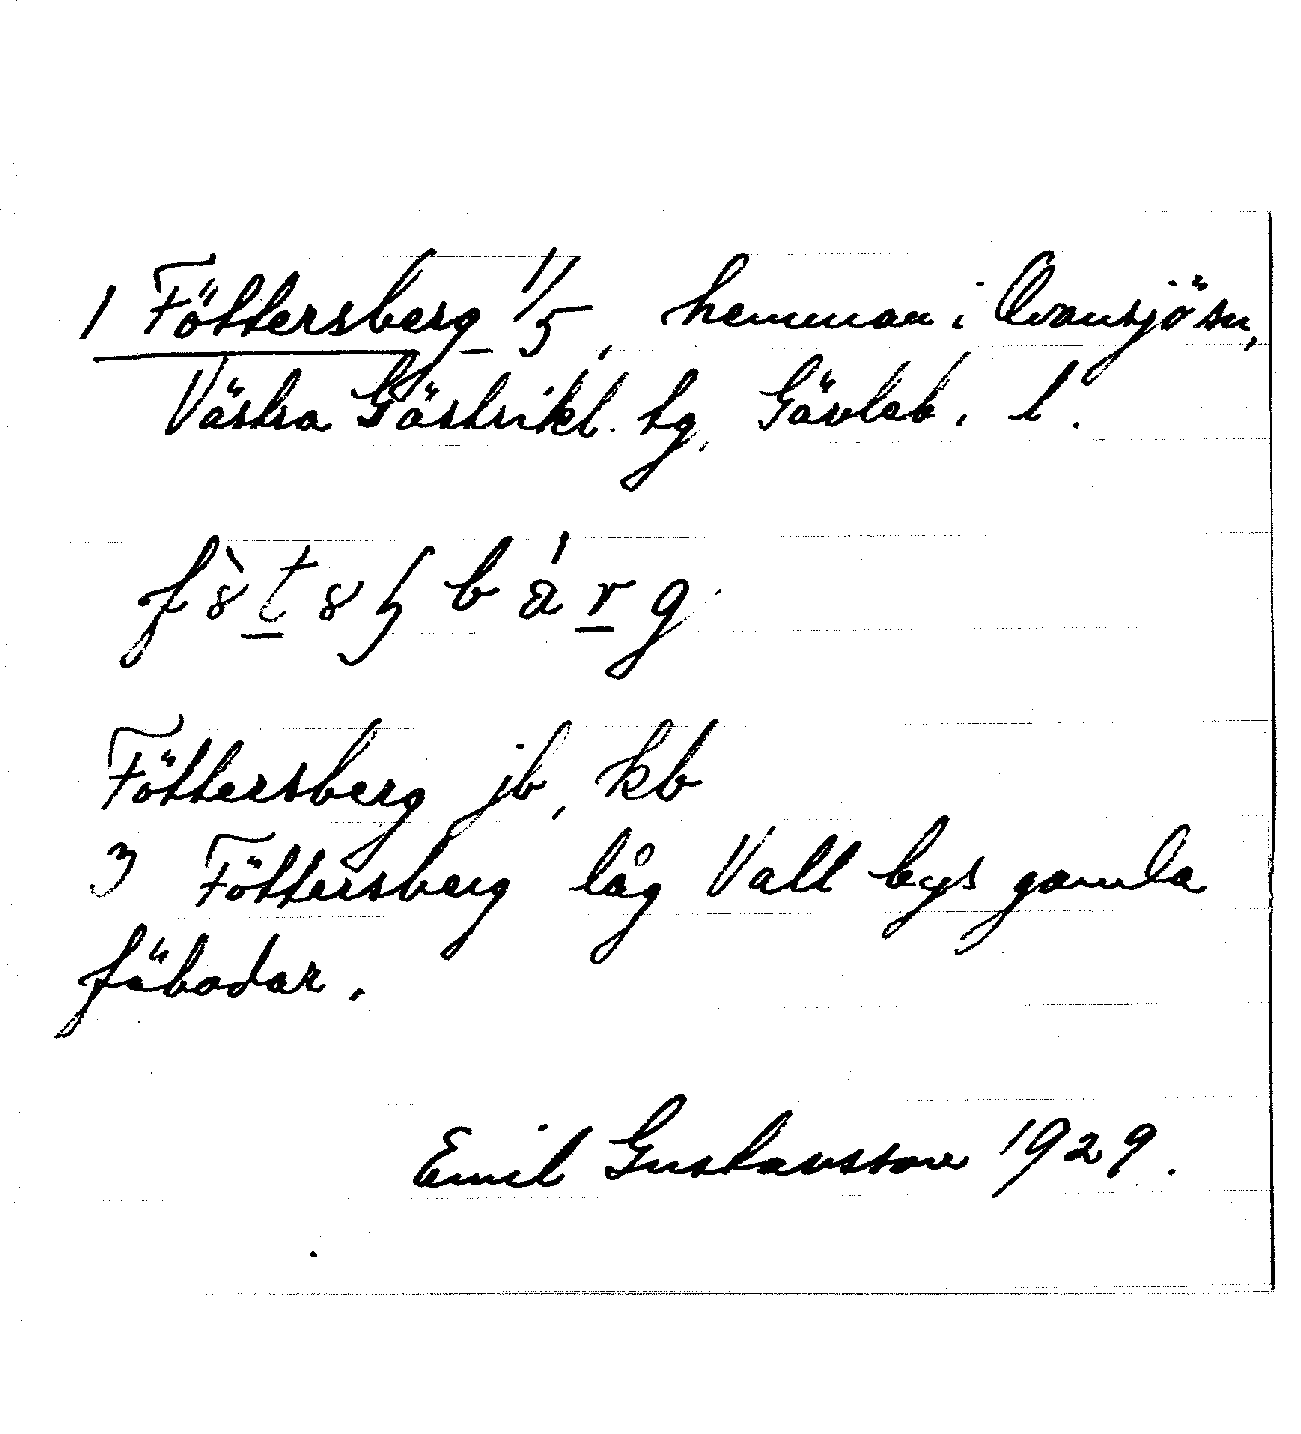 1 Föttersberg 1/5, hemman i Ovansjö sn,
Västra Gästrikl. tg, Gävleb. l.
Föttersberg jb, kb
3 Föttersberg låg Vall bys gamla
fäbodar.
Emil Gustavsson 1929.